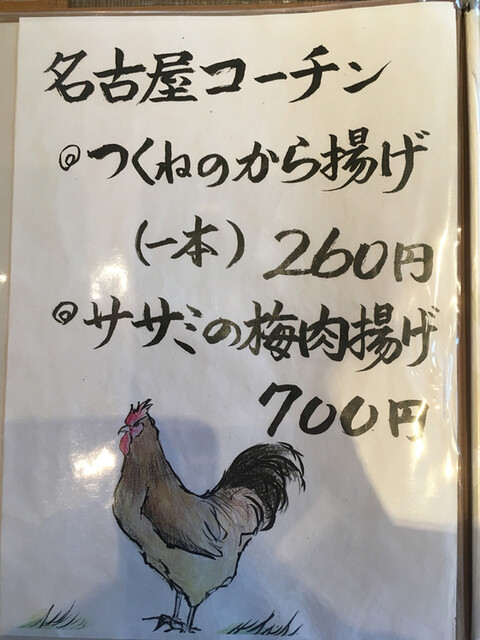 名古屋コーチン
◎つくねのから揚げ
(一本) 260円
◎ササミの梅肉揚げ
700円